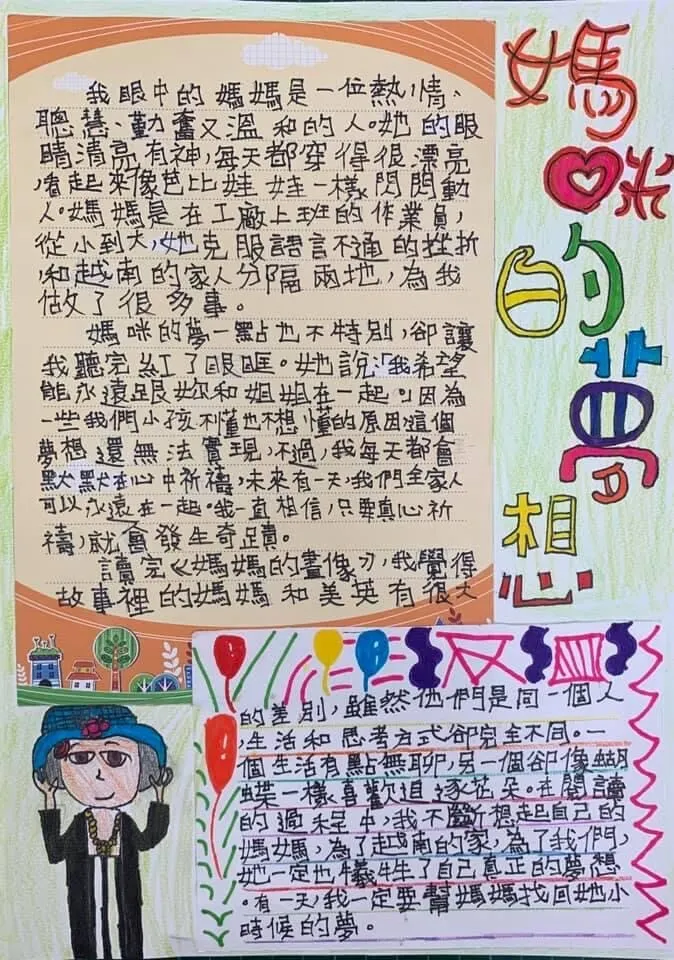 媽咪的夢想
我眼中的媽媽是一位熱情、
聰慧、勤奮又溫和的人。她的眼
睛清亮有神，每天都穿得很漂亮
，看起來像芭比娃娃一樣閃閃動
人。媽媽是在工廠上班的作業員，
從小到大，她克服語言不通的挫折
，和越南的家人分隔兩地，為我
做了很多事。
媽咪的夢一點也不特別，卻讓
我聽完紅了眼眶。她說：「我希望
能永遠跟妳和姐姐在一起。」因為
一些我們小孩不懂也不想懂的原因這個
夢想還無法實現，不過，我每天都會
默默在心中祈禱，未來有一天，我們全家人
可以永遠在一起。我一直相信，只要真心祈
禱，就會發生奇蹟。
讀完《媽媽的畫像》，我覺得
故事裡的媽媽和美英有很大
的差別，雖然他們是同一個人
，生活和思考方式卻完全不同。一
個生活有點無聊，另一個卻像蝴
蝶一樣喜歡追逐花朵。在閱讀
的過程中，我不斷想起自己的
媽媽，為了越南的家，為了我們，
她一定也犧牲了自己真正的夢想
。有一天，我一定要幫媽媽找回她小
時候的夢。